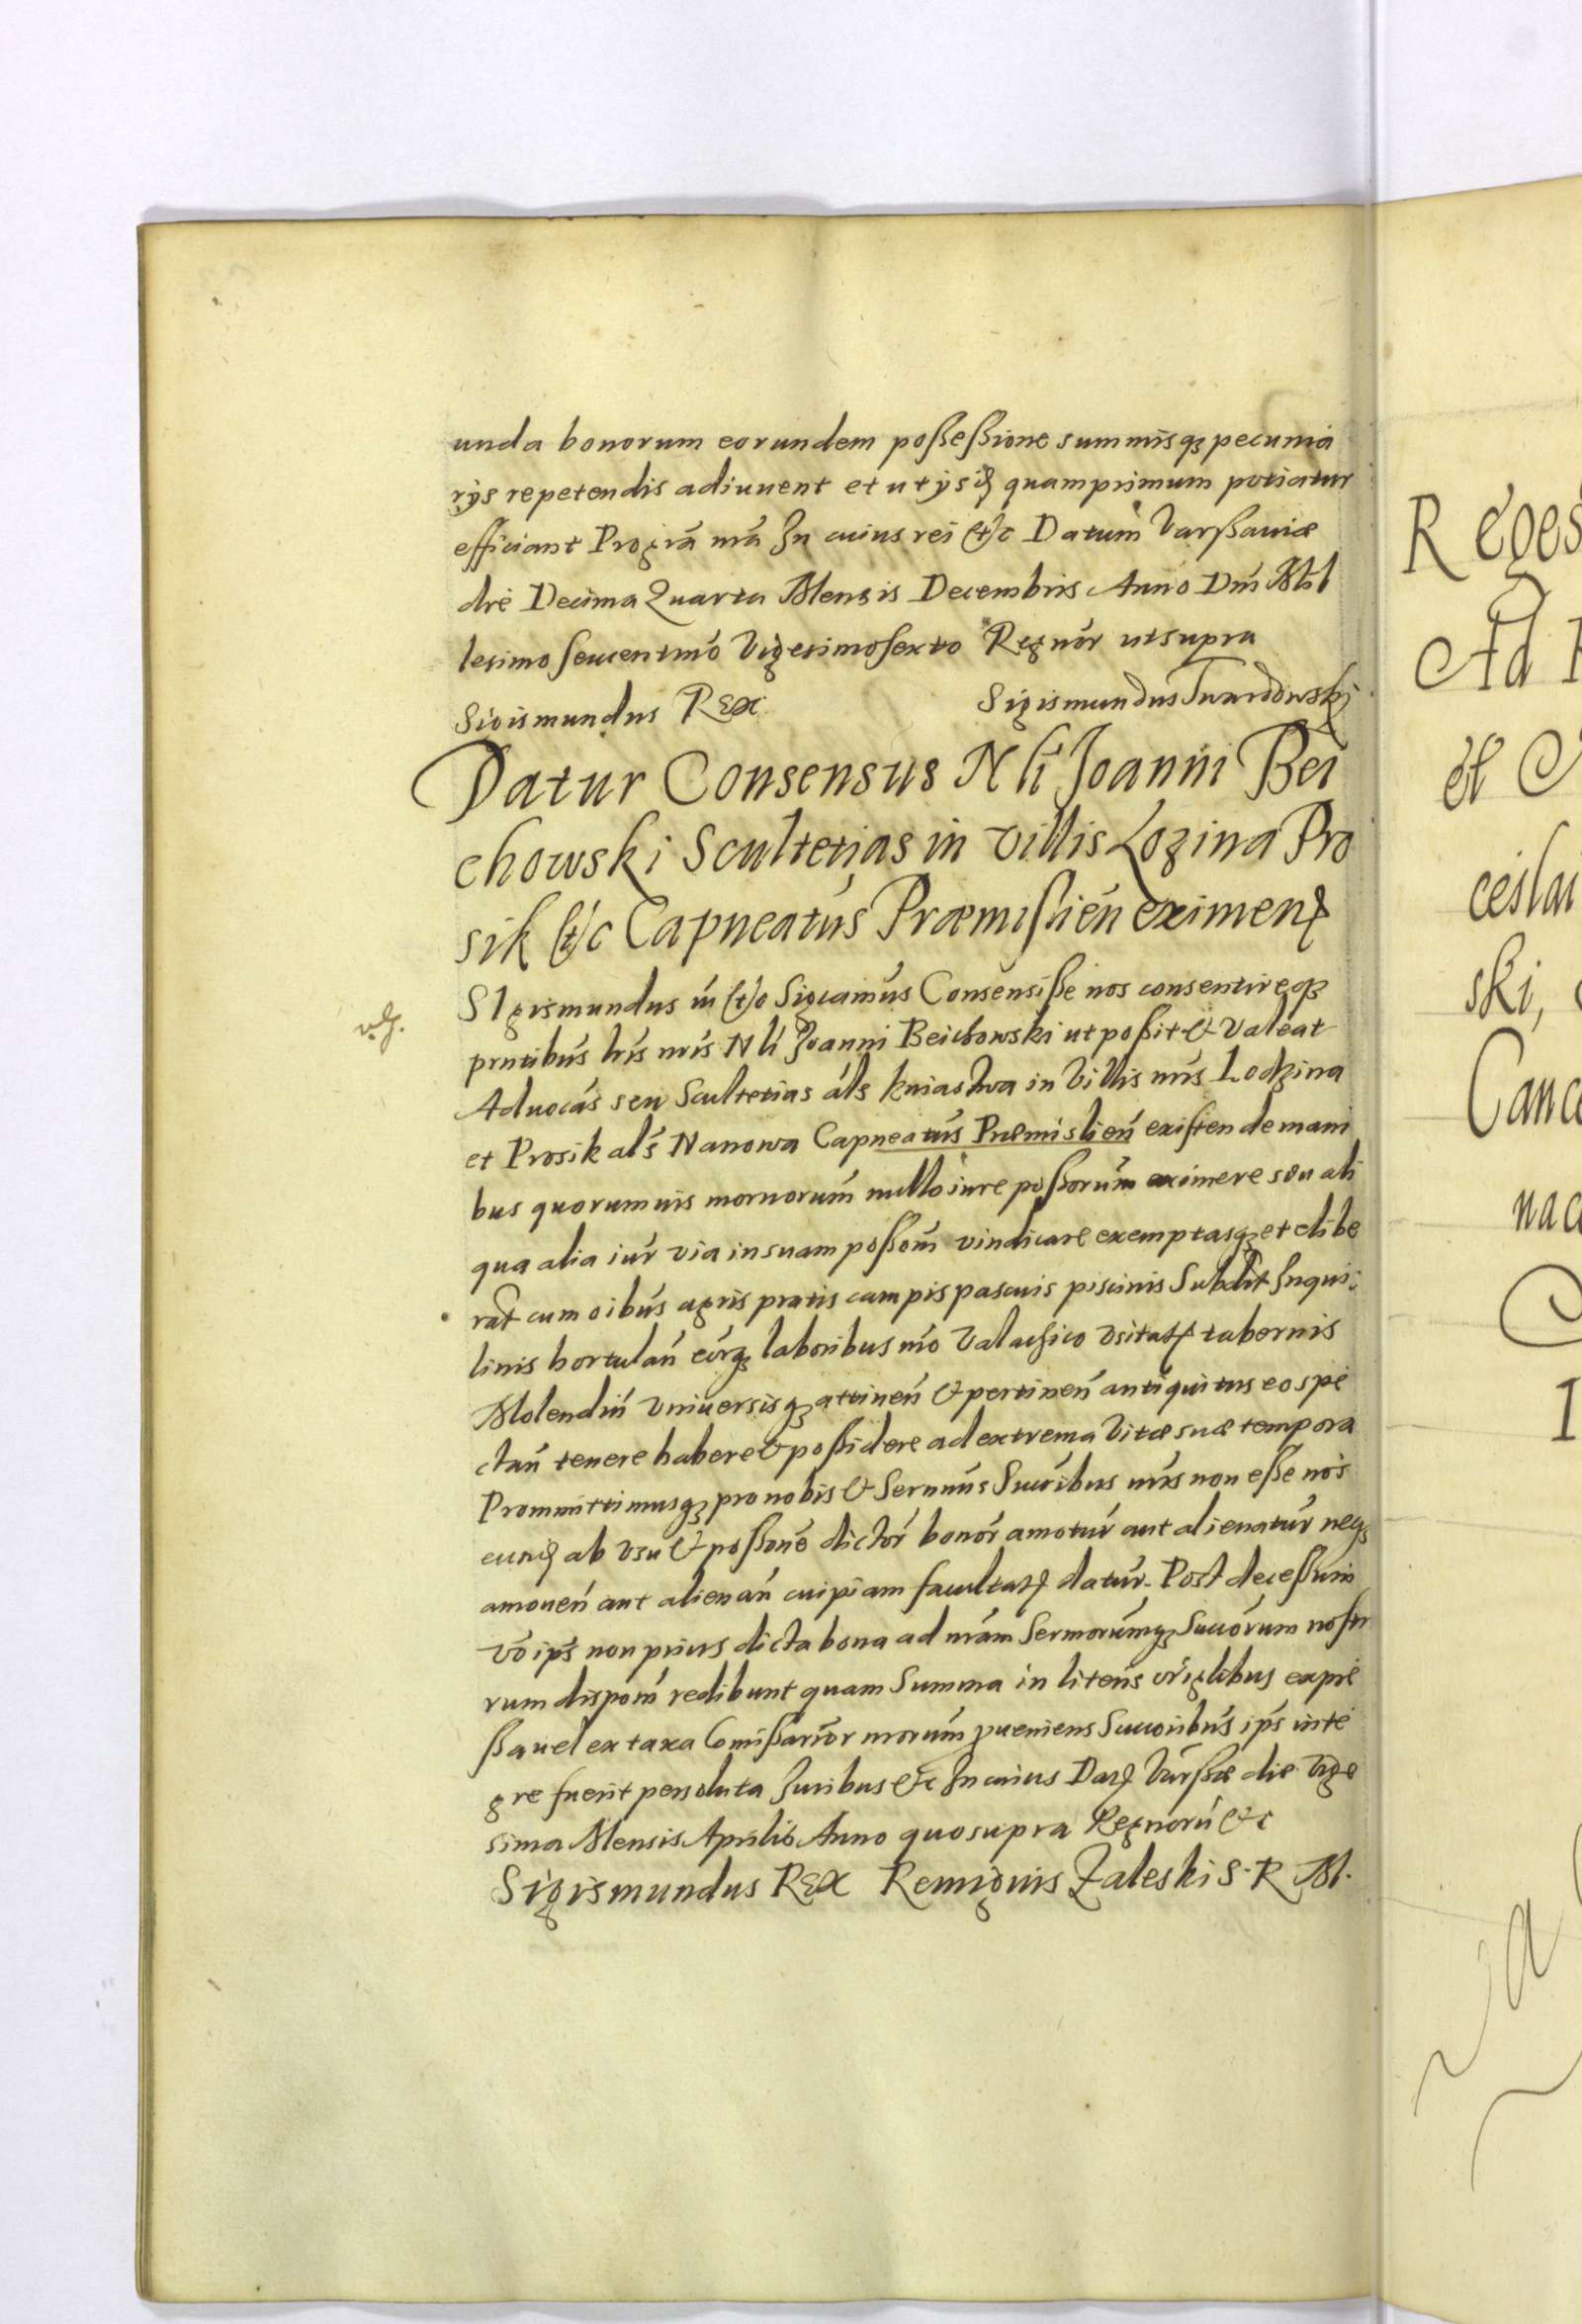 unda bonorum eorundem poßeßione summisq₃ pecunia
rÿs repetendis adiuuent et ut ÿs quamprimum potiatur
efficiant Pro gra͂ nra͂ In cuius rei etc Datum Varßauiæ
die Decima Quarta Mensis Decembris Anno Dni Mil
lesimo sexcentmo Vigesimosexto Regnor utsupra
Sigismundus Rex Sigismundus Twardowski
Datur Consensus Nli Joanni Bei
chowski Scultetias in villis Lozina Pro
sik etc Capneatus Præmislien eximen
SIgismundus in etc Sigcamus Consensiße nos consentireq₃
prntibus lris nris Nli Joanni Beichowski ut poßit & Valeat
Aduocas seu Scultetias als kniastwa in Villis nris Lodzina
et Prosik als Nanowa Capneatus Præmislien existen de mani
bus quorumuis mornorum nullo iure poßorum eximere seu ali
qua alia iur via in suam poßom vindicare exemptasq₃ et elibe
rat cum oibus agris pratis campis pascuis piscinis Subdit Inqui:
linis hortulan eorq₃ laboribus mo Valachico vsitat tabernis
Molendin Vniuersisq₃ attinen & pertinen antiquitus eo spe
ctan tenere habere & poßidere ad extrema Vitæ suæ tempora
Prommittimusq₃ pro nobis & Sermis Succribus nris non eße nos
eund ab vsu & poßone dictor bonor amotur aut alienatur neq₃
amouen aut alienan cuipiam facultat datur. Post deceßum
vo ips non prius dicta bona ad nram Sermorumq₃ Succorum nostr
rum disponi redibunt quam Summa in literis origlibus expre
ßa uel ex taxa Comißarior mororum proueniens Succoribus ips inte
gre fuerit persoluta Iuribus etc In cuius Dat Varßæ die Vige
sima Mensis Aprilis Anno quo supra Regnoru etc
Sigismundus Rex Remigius Zaleski S. R. M.
R eges
Ad
et
ceslai
ski,
Canc
nac
I